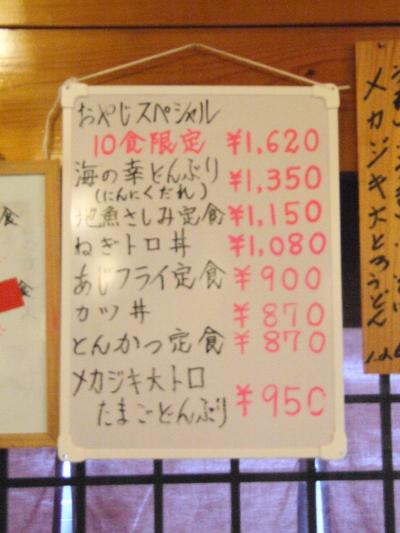 おやじスペシャル
10食限定 ¥1,620
海の幸どんぶり ¥1,350
(にんにくだれ)
地魚さしみ定食 ¥1,150
ねぎトロ丼 ¥1,080
あじフライ定食 ¥900
カツ丼 ¥870
とんかつ定食 ¥870
メカジキ大トロ
たまごどんぶり ¥950
メカジキ大とろうどん
食
食